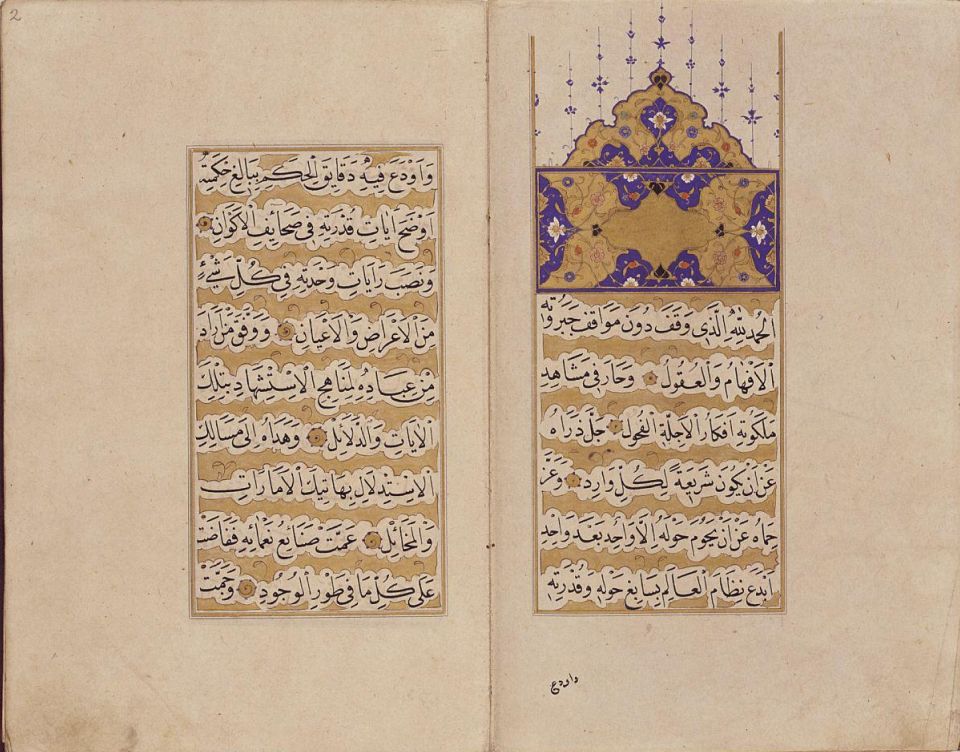 الحمد لله الذي وقف دون مواقف جبروته
الافهام والعقول وحار في مشاهد
ملكوته افكار الاجلة الفحول جل ذراه
عن ان يكون شريعة لكل وارد وعز
حماه عن ان يحوم حوله الا واحد بعد واحد
ابدع نظام العالم بسابغ حوله وقدرته
واودع
2
واودع فيه دقايق الحكم ببالغ حكمته
اوضح ايات قدرته في صحايف الاكوان
ونصب رايات وحدته في كل شيء
من الاعراض والاعيان ووفق من اراد
من عباده لمناهج الاستشهاد بتلك
الايات والدلائل وهداه الى مسالك
الاستدلال بهاتيك الامارات
والمخائل عمت صنائع نعمائه ففاضت
على كل ما في طور الوجود وجمت